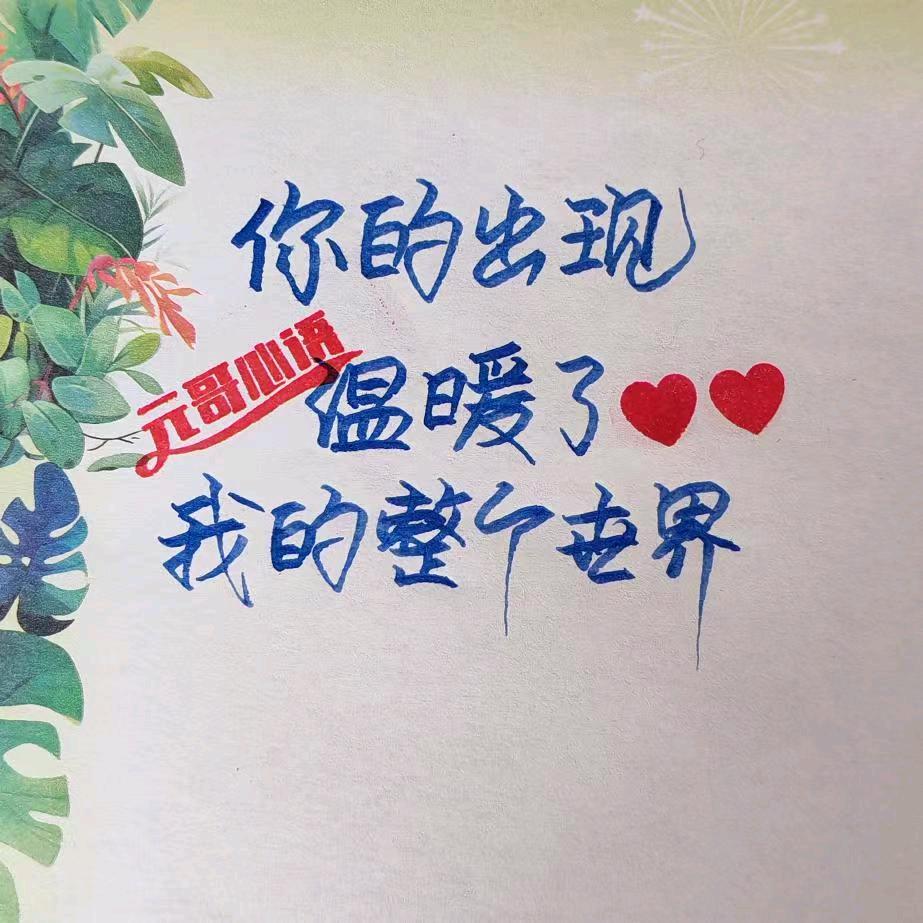 你的出现
元哥心语
温暖了
我的整个世界